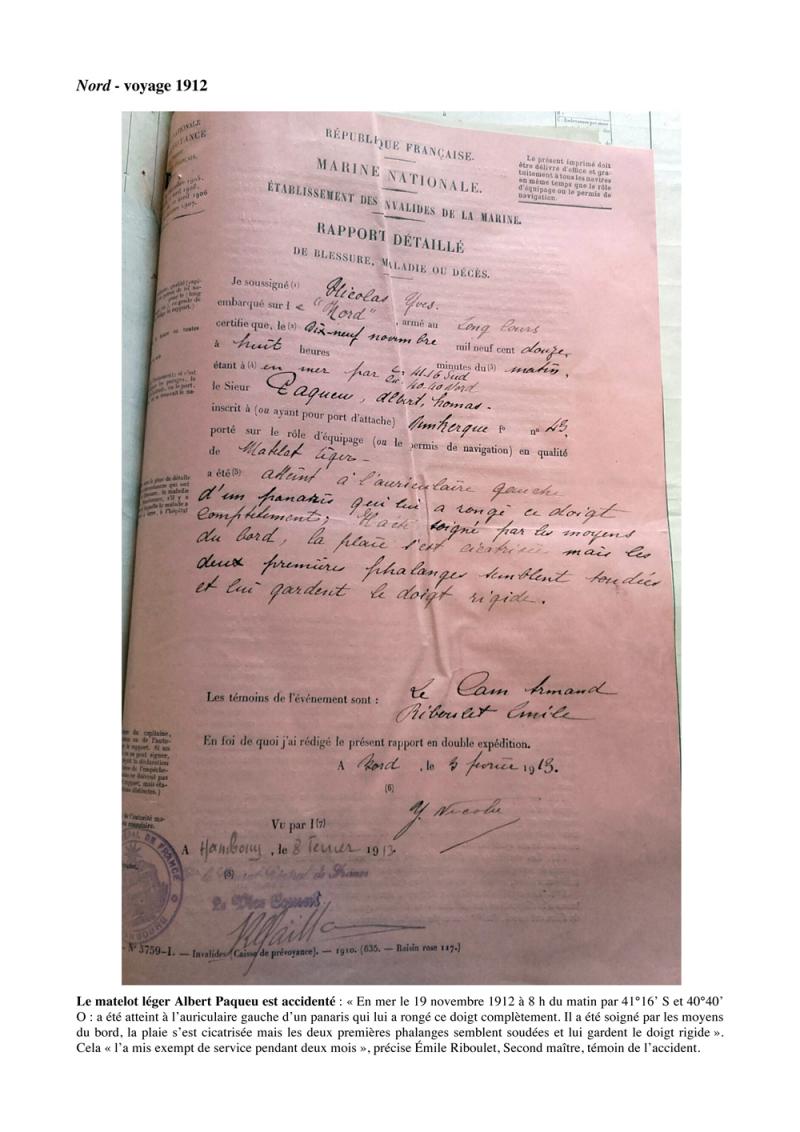 Nord - voyage 1912
RÉPUBLIQUE FRANÇAISE.
MARINE NATIONALE.
ÉTABLISSEMENT DES INVALIDES DE LA MARINE.
RAPPORT DÉTAILLÉ
DE BLESSURE, MALADIE OU DÉCÈS.
Le présent imprimé doit
être délivré d'office et gra-
tuitement à tous les navires
en même temps que le rôle
d'équipage ou le permis de
navigation.
Je soussigné (1) Nicolas Yves.
embarqué sur le "Nord", armé au Long Cours
certifie que, le (2) Dix-neuf novembre mil neuf cent douze,
à huit heures minutes du (3) matin,
étant à (4) en mer par 41.16 Sud
40.40
le Sieur Paqueu, Albert, Thomas.
inscrit à (ou ayant pour port d'attache) Dunkerque fº nº 43,
porté sur le rôle d'équipage (ou le permis de navigation) en qualité
de Matelot léger
a été (5) atteint à l'auriculaire gauche
d'un panaris qui lui a rongé ce doigt
complètement; Il a été soigné par les moyens
du bord, la plaie s'est cicatrisée mais les
deux premières phalanges semblent soudées
et lui gardent le doigt rigide.
Les témoins de l'événement sont : Le Cam Armand
Riboulet Emile
En foi de quoi j'ai rédigé le présent rapport en double expédition.
A Nord, le 3 février 1913.
(6)
Y. Nicolas
Vu par l (7)
A Hambourg, le 8 février 1913.
(8)
Le Vice Consul
Nº 3759-I. — Invalides (Caisse de prévoyance). — 1910. (635. — Raisin rose 117.)
Le matelot léger Albert Paqueu est accidenté : « En mer le 19 novembre 1912 à 8 h du matin par 41°16’ S et 40°40’
O : a été atteint à l’auriculaire gauche d’un panaris qui lui a rongé ce doigt complètement. Il a été soigné par les moyens
du bord, la plaie s’est cicatrisée mais les deux premières phalanges semblent soudées et lui gardent le doigt rigide ».
Cela « l’a mis exempt de service pendant deux mois », précise Émile Riboulet, Second maître, témoin de l’accident.